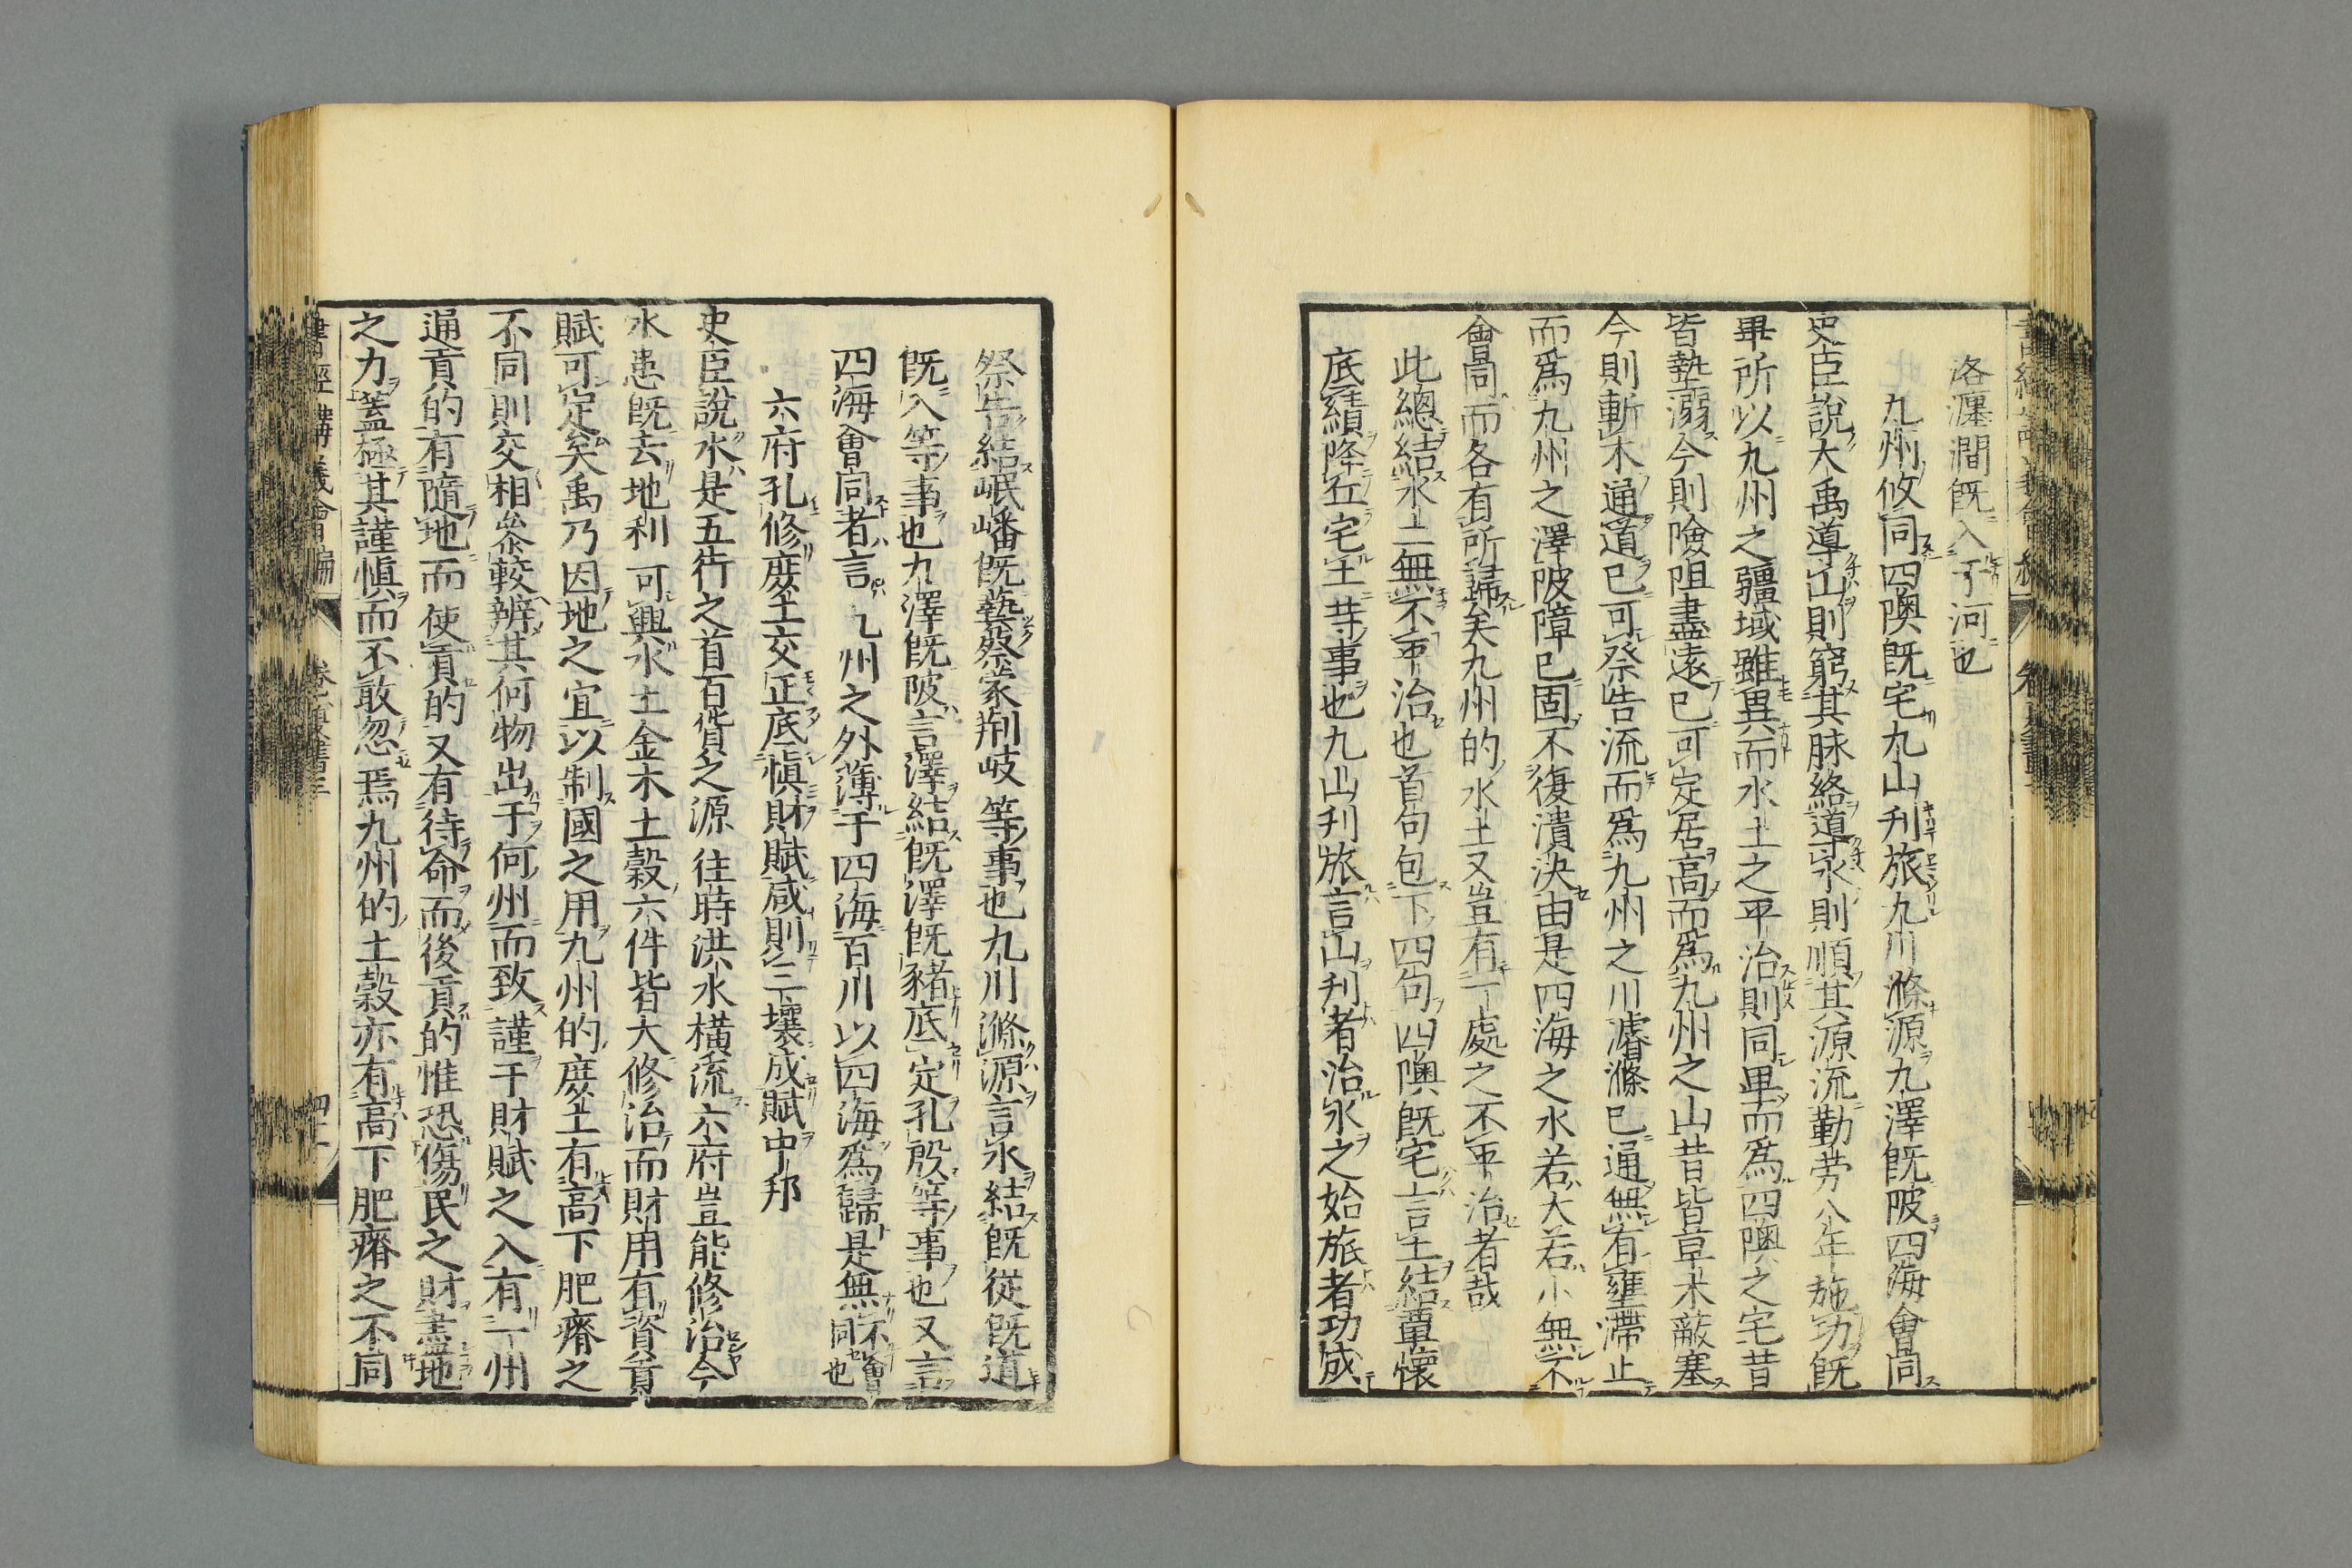 洛瀍澗既入于河也
九州攸同四隩既宅九山刋旅九川滌源九澤既陂四海會同
史臣說大禹導山則窮其脉絡導水則順其源流勤劳八年施功既
畢所以九州之疆域雖異而水土之平治則同畢而爲四隩之宅昔
皆墊溺今則險阻盡遠已可定居高而爲九州之山昔皆草木蔽塞
今則斬木通道已可祭告流而爲九州之川濬滌已通無有壅滯止
而爲九州之澤陂障已固不復潰決由是四海之水若大若小無不
會同而各有所歸矣九州的水土又豈有一處之不平治者哉
此總結水土無不平治也首句包下四句四隩既宅言土結覃懷
底績降丘宅土等事也九山刋旅言山刋者治水之始旅者功成
祭告結岷嶓既藝蔡蒙荆岐等事也九川滌源言水結既從既道
既入等事也九澤既陂言澤結既澤既豬底定孔殷等事也又言
四海會同者言九州之外薄于四海百川以四海爲歸是無不會同也
六府孔修庶土交正底愼財賦咸則三壤成賦中邦
史臣說水是五行之首百貨之源往時洪水橫流六府豈能修治今
水患既去地利可興水土金木土穀六件皆大修治而財用有資貢
賦可定矣禹乃因地之宜以制國之用九州的庶土有高下肥瘠之
不同則交相叅較辨其何物出于何州而致謹于財賦之入有一州
通貢的有隨地而使貢的又有待命而後貢的惟恐傷民之財盡地
之力蓋極其謹愼而不敢忽焉九州的土穀亦有高下肥瘠之不同
書經講義會編